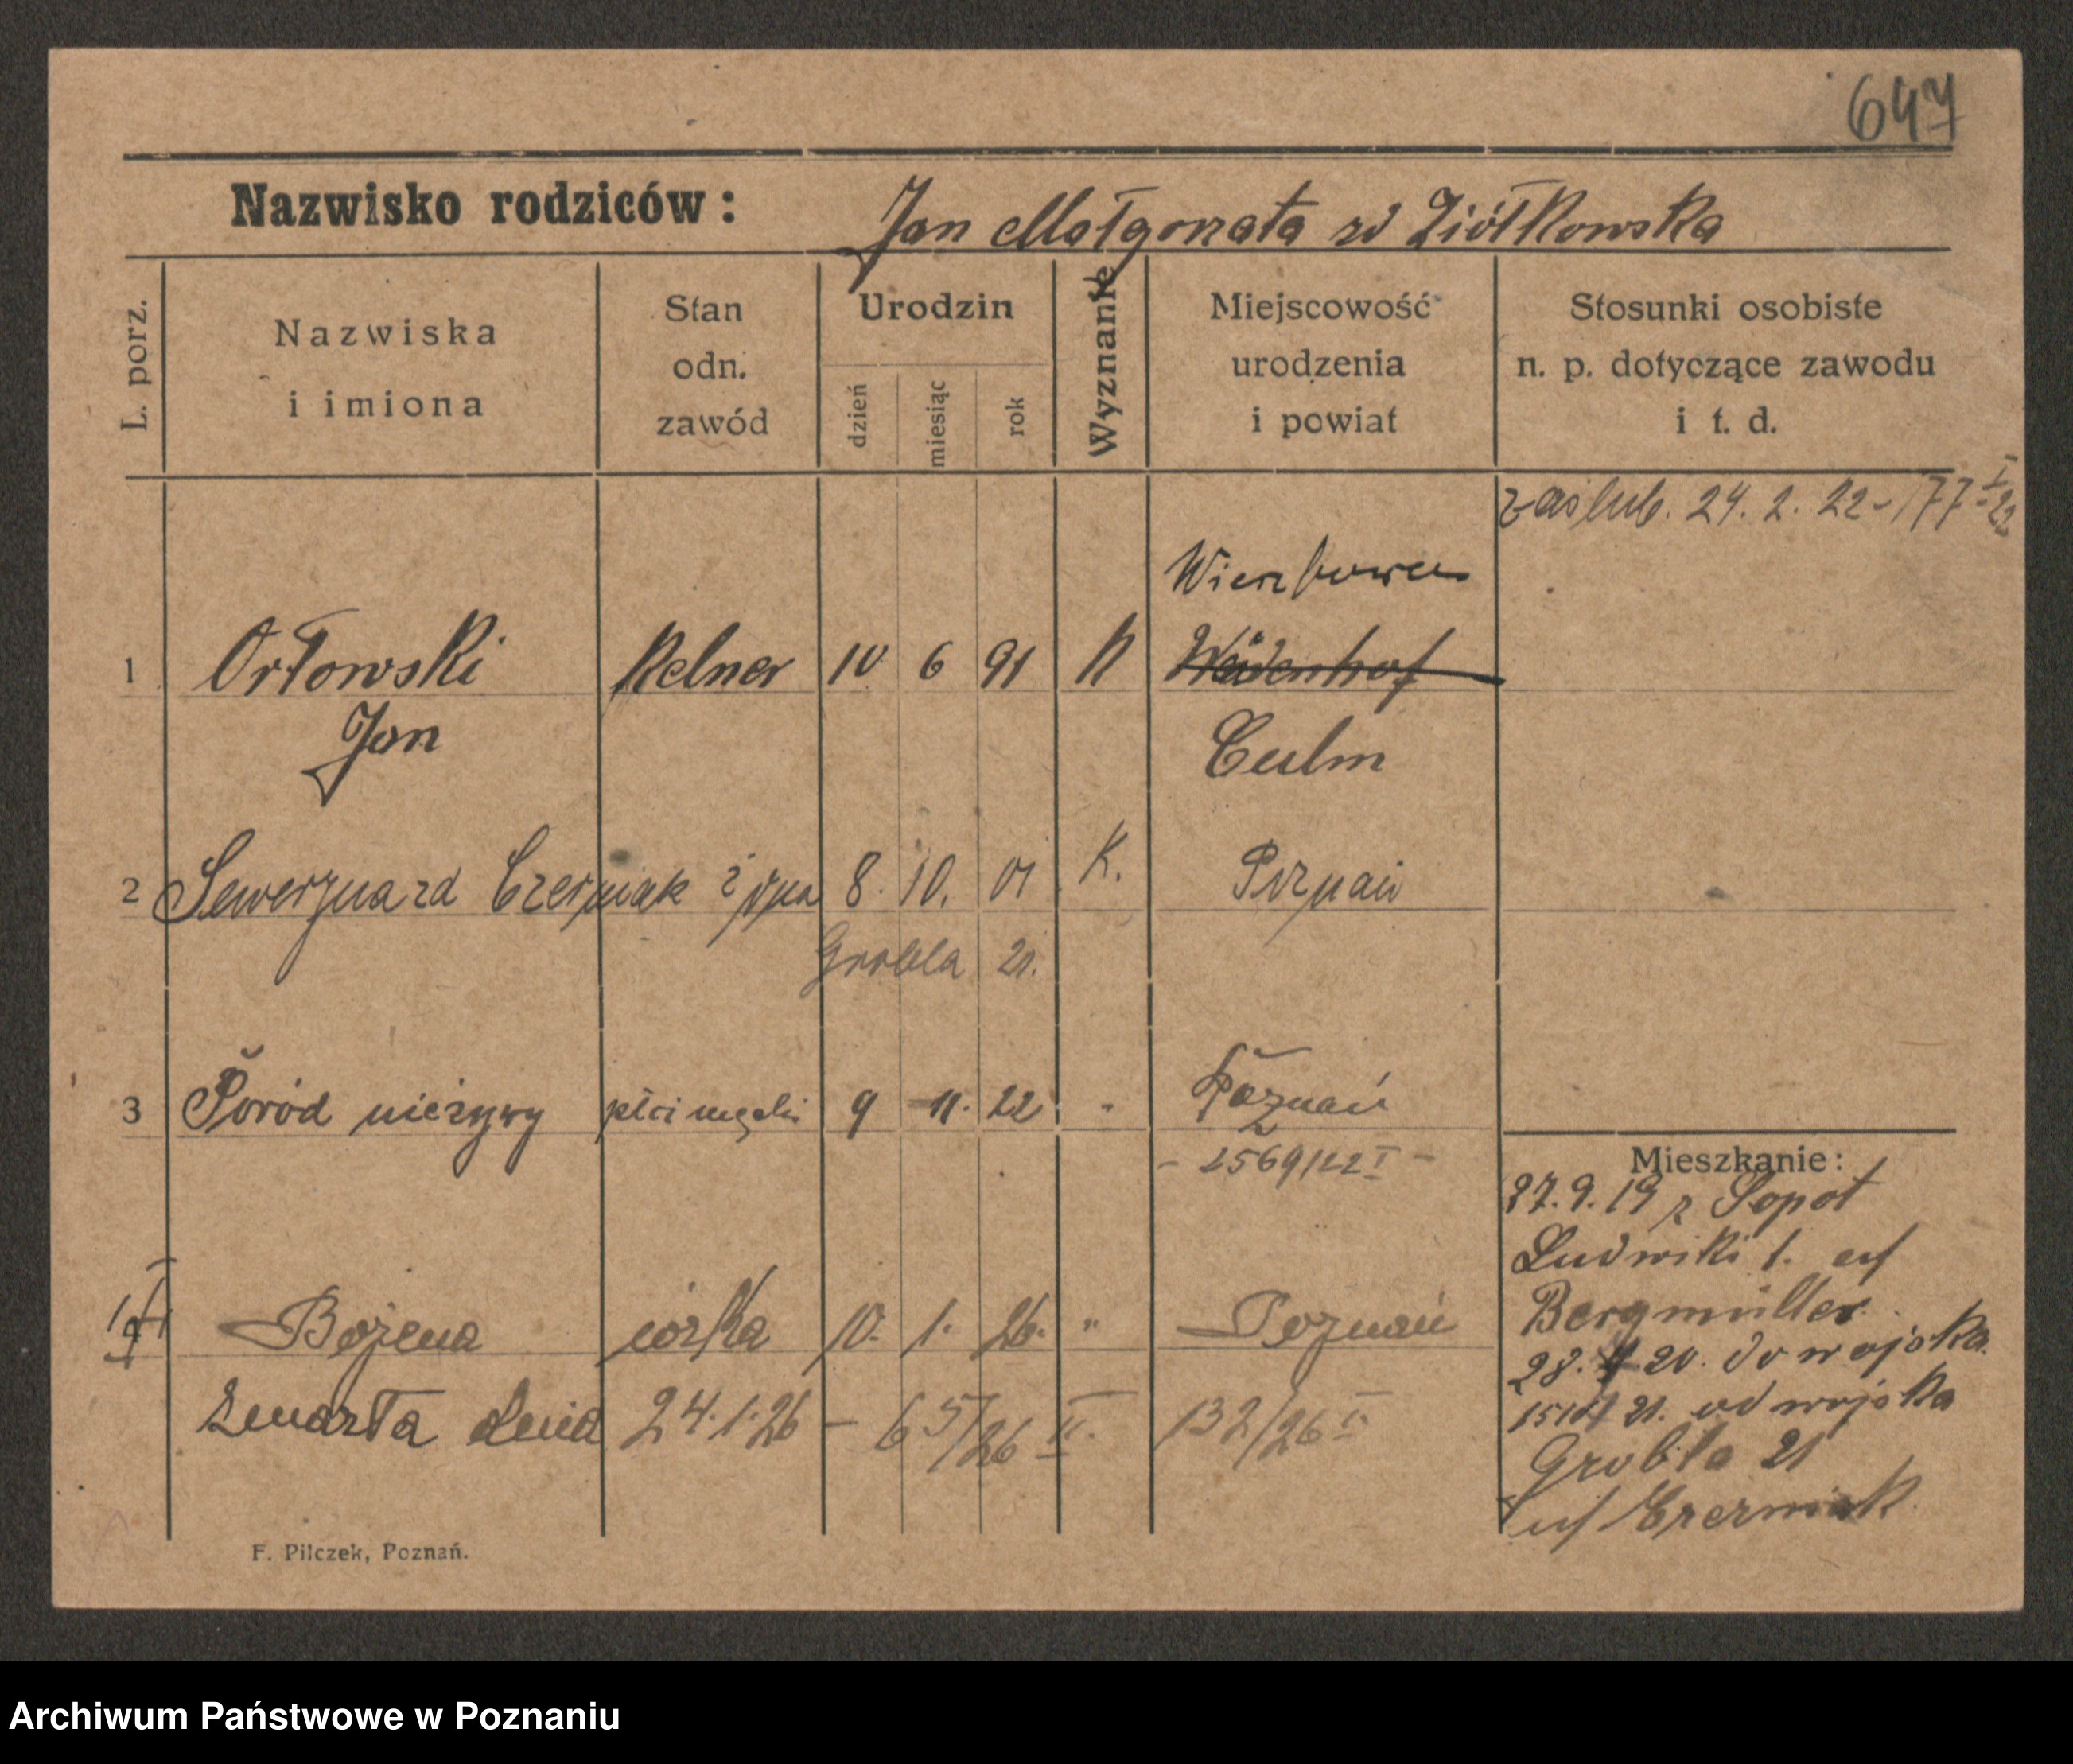 647
Nazwisko rodziców: Jan Małgorzata zd Ziółkowska
L. porz.
Nazwiska i imiona
Stan odn. zawód
Urodzin
dzień miesiąc rok
Wyznanie
Miejscowość urodzenia i powiat
Stosunki osobiste n. p. dotyczące zawodu i t. d.
zaślub. 24. 2. 22 - 177 I 22
Wierzbowa
1 Orłowski Kelner 10 6 91 K Weidenhof
Jan Culm
2 Seweryna zd Czerniak żona 8. 10. 01 K. Poznań
Grobla 21.
3 Poród nieżywy płci męski 9 11. 22 " Poznań
- 2569/22 I -
Mieszkanie:
27. 9. 19 z Sopot
Ludwiki 1. uf
Bergmüller
4 Bożena córka 10. 1. 26. " Poznań
28. 20. do wojska
21. od wojska
zmarła dnia 24.1.26 - 65/26 II. 132/26 I.
Grobla 21
uf Czerniak
F. Pilczek, Poznań.
Archiwum Państwowe w Poznaniu